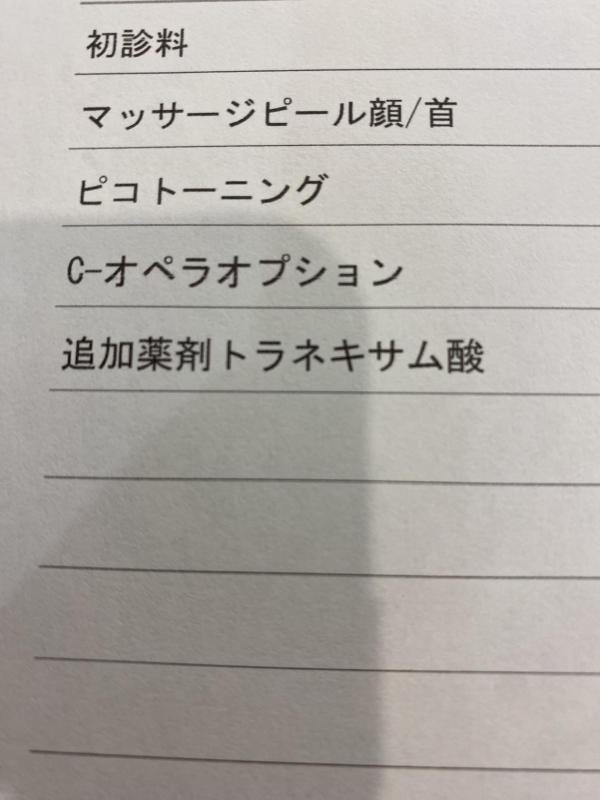 初診料
マッサージピール顔/首
ピコトーニング
C-オペラオプション
追加薬剤トラネキサム酸